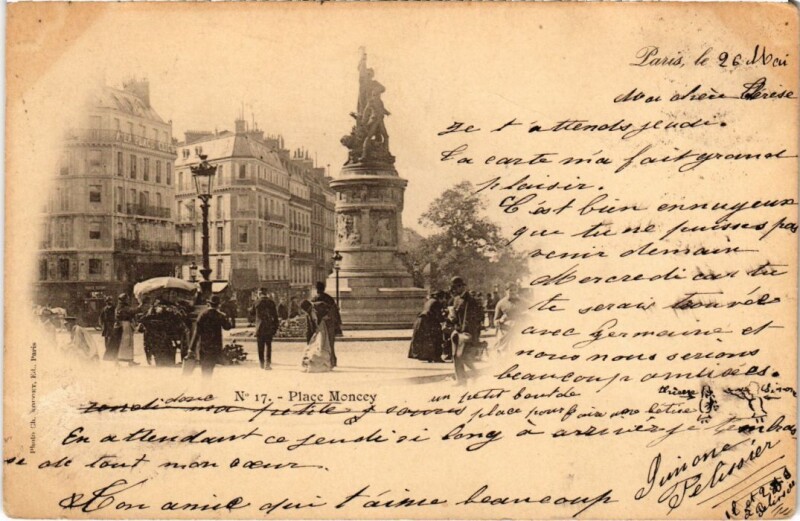 Paris, le 26 Mai
Ma chère Thérèse
Je t'attends jeudi.
Ta carte m'a fait grand
plaisir.
C'est bien ennuyeux
que tu ne puisses pas
venir demain
Mercredi car tu
te serais trouvée
avec Germaine et
nous nous serions
beaucoup amusées.
un petit bout de
donc
N° 17. - Place Moncey
place pour
En attendant ce jeudi si long à arriver je
de tout mon cœur.
Ton amie qui t'aime beaucoup
Simone
Pelissier
Photo Ch. Éd. Paris